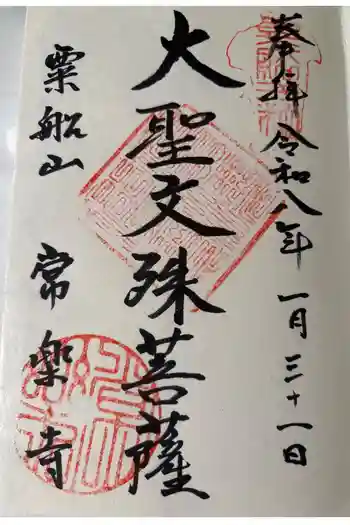 奉拝 令和八年 一月三十一日
大聖文殊菩薩
粟船山 常楽寺